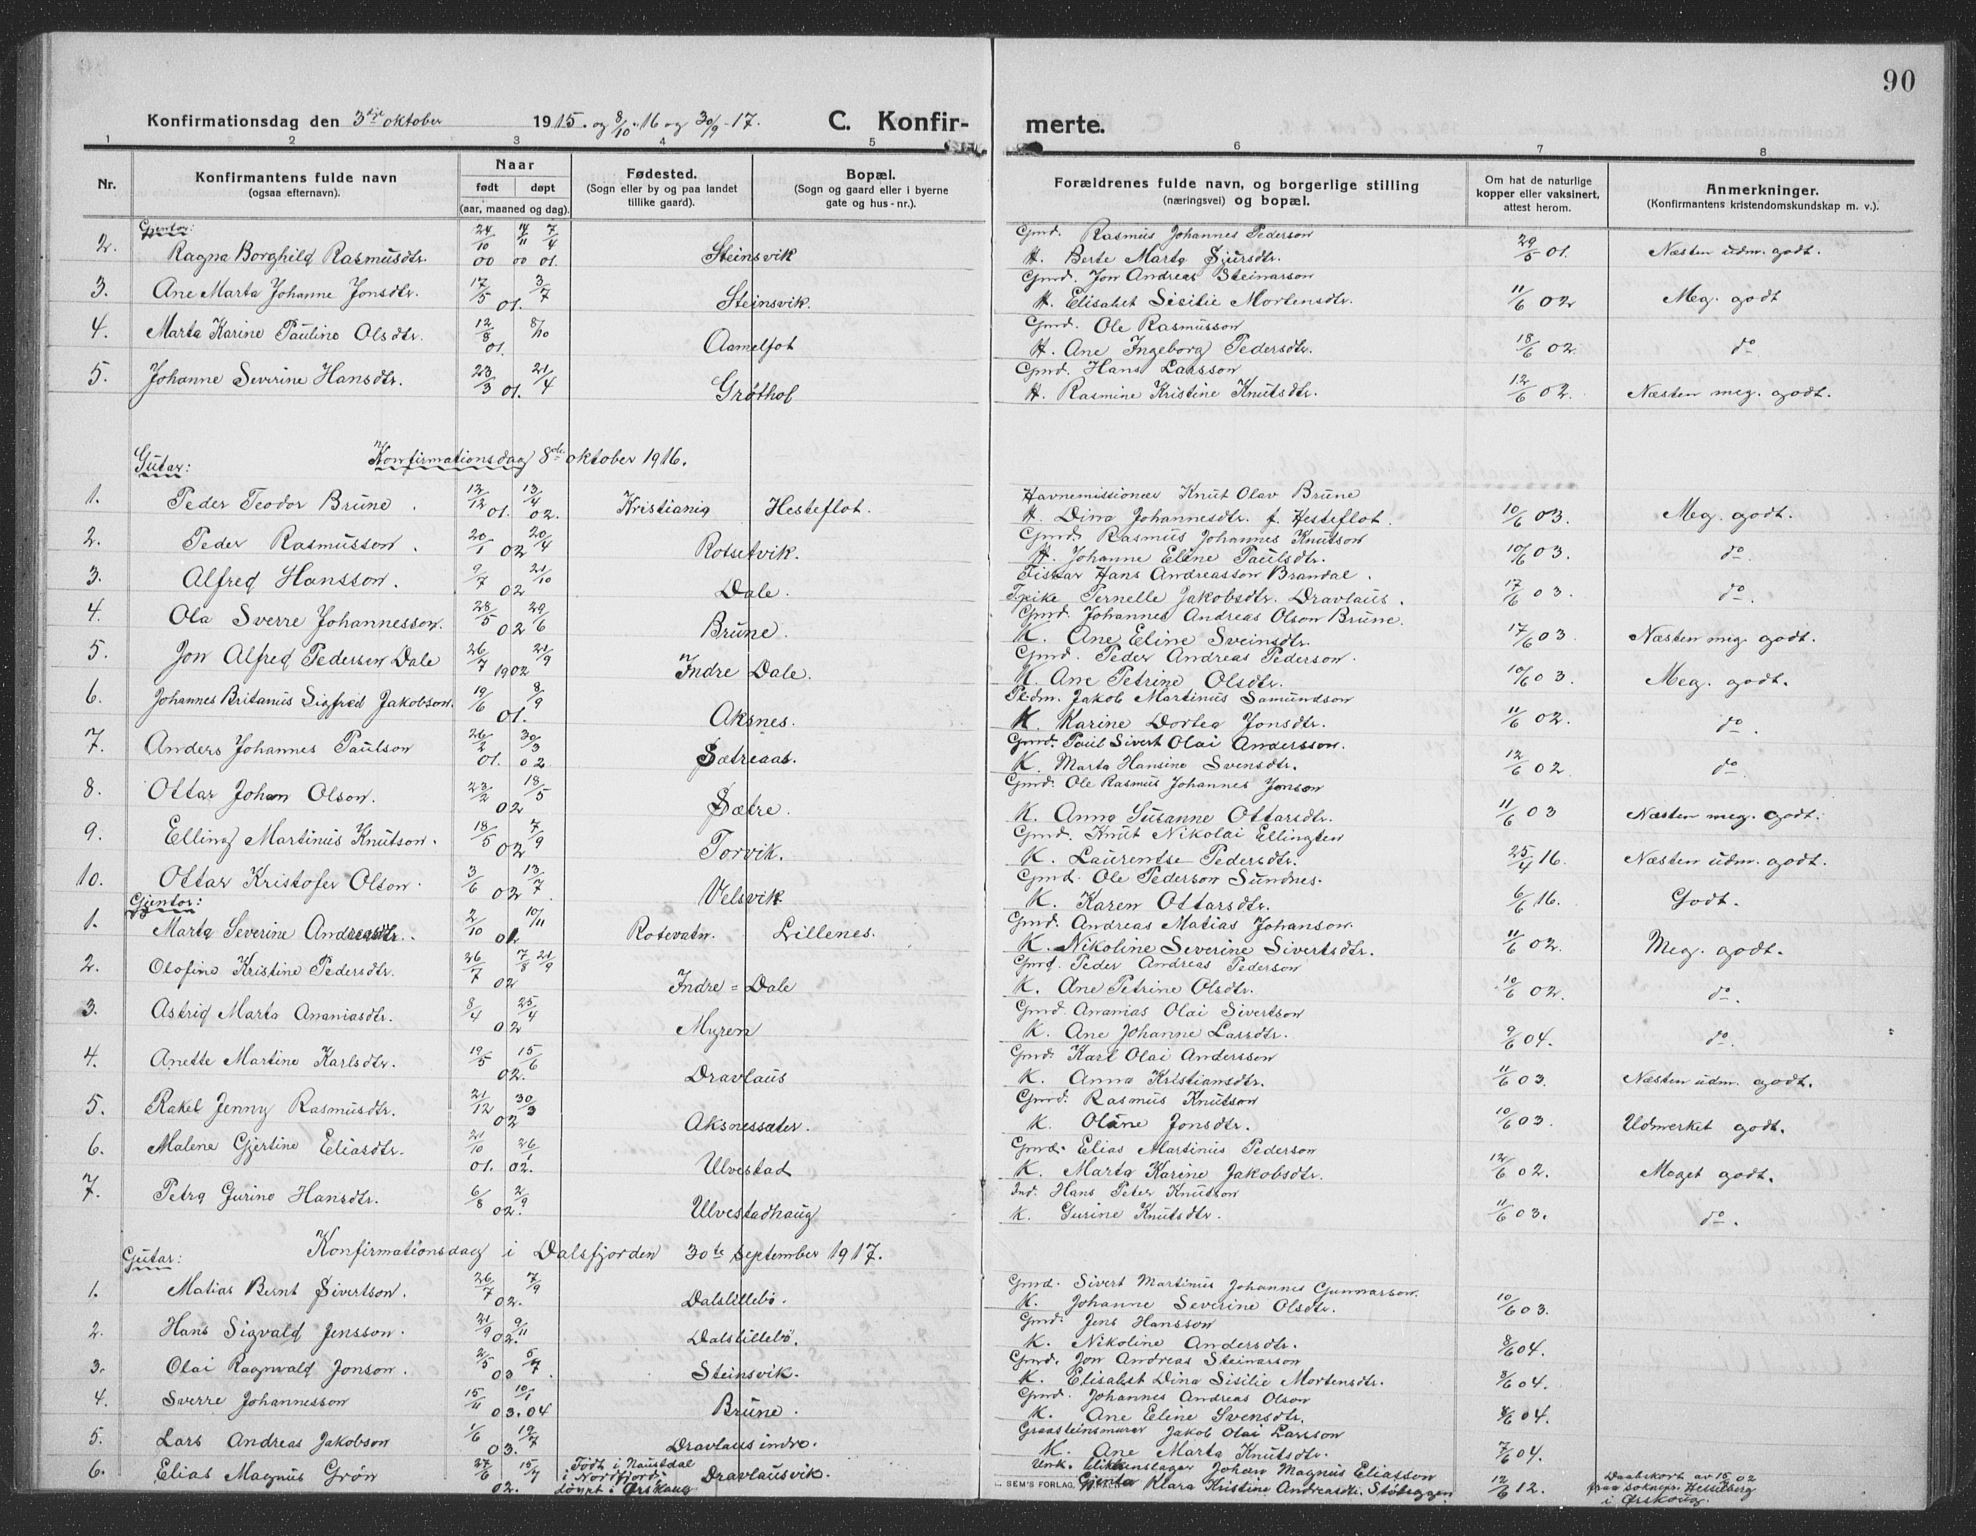 90
Konfirmationsdag den 3die oktober 1915. og 8/10-16 og 30/9-17. C. Konfir- merte.
1 2 3 4 5 6 7 8
Nr. Konfirmantens fulde navn (ogsaa efternavn). Naar født døpt (aar, maaned og dag). Fødested. (Sogn eller by og paa landet tillike gaard). Bopæl. (Sogn og gaard eller i byerne gate og hus-nr.). Forældrenes fulde navn, og borgerlige stilling (næringsvei) og bopæl. Om hat de naturlige kopper eller vaksinert, attest herom. Anmerkninger. (Konfirmantens kristendomskundskap m. v.).
Gjentor:
2. Ragna Borghild Rasmusdtr. 24/10 00 14/11 00 7/4 01. Steinsvik Gmd. Rasmus Johannes Pederson
H. Berte Marta Sjursdtr. 29/5 01. Næsten udm. godt.
3. Ane Marta Johanne Jonsdtr. 17/5 01. 3/7 Steinsvik. Gmd. Jon Andreas Steinarson
H. Elisabet Sisilie Mortensdtr. 11/6 02 Meg. godt
4. Marta Karine Pauline Olsdtr. 12/8 01. 8/10 Aamelfot Gmd. Ole Rasmusson
H. Ane Ingeborg Pedersdtr. 18/6 02. do
5. Johanne Severine Hansdtr. 23/3 01. 21/4 Grøthol Gmd. Hans Larsson
H. Rasmine Kristine Knutsdtr. 12/6 02. Næsten meg. godt.
Gutar: Konfirmationsdag 8de oktober 1916.
1. Peder Teodor Brune. 12/12 01. 13/4 02. Kristiania Hesteflot. Havnemissionær Knut Olav Brune
H. Dina Johannesdtr. f. Hesteflot. 10/6 03. Meg. godt.
2. Peder Rasmusson. 20/1 02 20/4 Rotsetvik. Gmd. Rasmus Johannes Knutson
H. Johanne Eline Paulsdtr. 10/6 03. do
3. Alfred Hansson. 9/7 02 21/10 Dale. Fiskar Hans Andreasson Brandal.
Tpike Pernelle Jakobsdtr. Dravlaus. 17/6 03. do.
4. Ola Sverre Johannesson. 28/5 02 29/6 Brune. Gmd. Johannes Andreas Olson Brune.
K. Ane Eline Sveinsdtr. 17/6 03. Næsten meg. godt.
5. Jon Alfred Pederson Dale 26/7 1902 21/9 Indre Dale. Gmd. Peder Andreas Pederson.
K. Ane Petrine Olsdtr. 10/6 03. Meg. godt.
6. Johannes Britanus Sigfred Jakobson. 19/6 01. 8/9 Aksnes. Pl.dm. Jakob Martinus Samundson
K. Karine Dortea Jonsdtr. 11/6 02. do.
7. Anders Johannes Paulson 26/2 01. 30/3 02 Sætreaas. Gmd. Paul Sivert Olai Andersson.
K. Marta Hansine Svensdtr. 12/6 02. do.
8. Ottar Johan Olson. 23/2 02 18/5 Sætre. Gmd. Ole Rasmus Johannes Jonson
K. Anna Susanne Ottarsdtr. 11/6 03 Næsten meg. godt.
9. Elling Martinus Knutson. 18/5 02 7/9 Torvik. Gmd. Knut Nikolai Ellingsen
K. Laurentse Pedersdtr. 25/4 16. Næsten udm. godt.
10. Ottar Kristofer Olson. 3/6 02 13/7 Velsvik Gmd. Ole Pederson Sundnes.
K. Karen Ottarsdtr. 6/6 16. Godt.
Gjentor:
1. Marta Severine Andreasdtr. 2/10 01 10/11 Rotevatn. Lillenes. Gmd. Andreas Matias Johanson.
K. Nikoline Severine Sivertsdtr. 11/6 02. Meg. godt.
2. Olofine Kristine Pedersdtr. 26/7 02 7/8 21/9 Indre=Dale Gmd. Peder Andreas Pederson
K. Ane Petrine Olsdtr. 10/6 02. do.
3. Astrid Marta Ananiasdtr. 8/4 02 25/4 Myren Gmd. Ananias Olai Sivertson
K. Ane Johanne Larsdtr. 9/6 04. do.
4. Anette Martine Karlsdtr. 19/5 02. 15/6 Dravlaus Gmd. Karl Olai Andersson
K. Anna Kristiansdtr. 11/6 03. Næsten udm. godt.
5. Rakel Jenny Rasmusdtr. 21/12 02 30/3 Aksnessæter. Gmd. Rasmus Knutson
K. Oline Jonsdtr. 10/6 03. Udmerket godt.
6. Malene Gjertine Eliasdtr. 21/10 01. 26/1 02. Ulvestad Gmd. Elias Martinus Pederson
K. Marta Karine Jakobsdtr. 12/6 02. Meget godt.
7. Petra Gurine Hansdtr. 6/8 02. 2/9 Ulvestadhaug Ind. Hans Peter Knutson
K. Gurine Knutsdtr. 11/6 03. do.
Gutar: Konfirmationsdag i Dalsfjorden 30te september 1917.
1. Matias Bernt Sivertson. 26/7 02. 7/9 Dalslillebø. Gmd. Sivert Martinus Johannes Gunnarson.
K. Johanne Severine Olsdtr. 10/6 03.
2. Hans Sigvald Jensson. 21/9 02. 9/11 Dalslillebø. Gmd. Jens Hansson
K. Nikoline Andersdtr. 8/6 04.
3. Olai Ragnvald Jonson. 2/5 03 5/7 Steinsvik. Gmd. Jon Andreas Steinarson
K. Elisabet Dina Sisilie Mortensdtr. 8/6 04.
4. Sverre Johannesson 15/11 03. 10/1 04 Brune. Gmd. Johannes Andreas Olson
K. Ane Eline Svensdtr. 8/6 04.
5. Lars Andreas Jakobson 1/6 03. 19/7 Dravlaus indre. Graasteinsmurar Jakob Olai Larsson
K. Ane Marta Knutsdtr. 7/6 04.
6. Elias Magnus Grøn 27/6 02. 15/7 Født i Naustdal i Nordfjord. Døypt i Ørskoug Dravlausvik. Unk. Johan Magnus Eliasson
Gjenta Klara Kristine Andreasdtr. Støbeggen 12/6 12. Daabskort av 15/6 02 fraa soknepr. Hesselberg i Ørskoug.
SEM'S FORLAG,